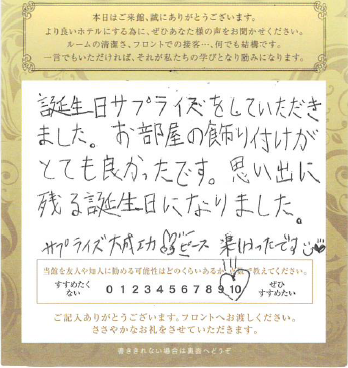 本日はご来館、誠にありがとうございます。
より良いホテルにする為に、ぜひあなた様の声をお聞かせください。
ルームの清潔さ、フロントでの接客…、何でも結構です。
一言でもいただければ、それが私たちの学びとなり励みになります。
誕生日サプライズをしていただき
ました。お部屋の飾り付けが
とても良かったです。思い出に
残る誕生日になりました。
サプライズ大成功 ピース 楽しかったです
当館を友人や知人に勧める可能性はどのくらいあるか、で教えてください。
すすめたく
ない
0 1 2 3 4 5 6 7 8 9 10
ぜひ
すすめたい
ご記入ありがとうございます。フロントへお渡しください。
ささやかなお礼をさせていただきます。
書ききれない場合は裏面へどうぞ